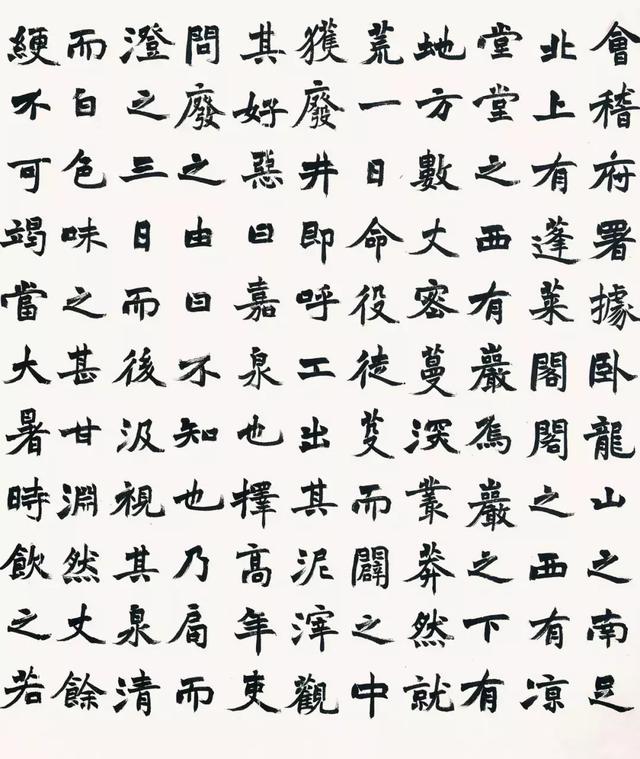 會稽府署據卧龍山之南足
北上有蓬萊閣閣之西有凉
堂堂之西有巖焉巖之下有
地方數丈密蔓深叢莽然就
荒一日命役徒芟而闢之中
獲廢井即呼工出其泥滓觀
其好惡曰嘉泉也擇高年吏
問廢之由曰不知也乃扃而
澄之三日而後汲視其泉清
而白色味之甚甘淵然丈餘
綆不可竭當大暑時飲之若